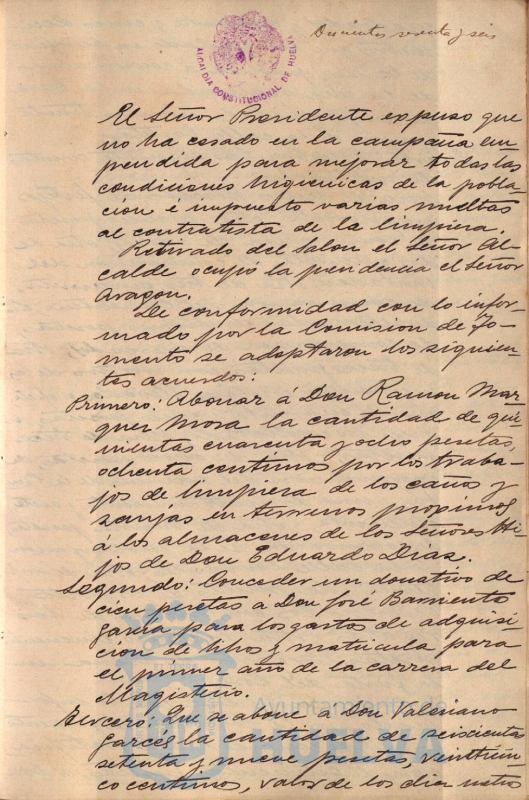 Doscientos sesenta y seis
ALCALDIA CONSTITUCIONAL DE HUELVA
El Señor Presidente expuso que
no ha cesado en la campaña em
prendida para mejorar todas las
condiciones higienicas de la pobla
cion é impuesto varias multas
al contratista de la limpieza.
Retirado del salon el Señor Al
calde ocupó la presidencia el Señor
Aragon.
De conformidad con lo infor-
mado por la Comision de Fo-
mento se adoptaron los siguien-
tes acuerdos:
Primero: Abonar á Don Ramon Mar
quez Mora la cantidad de qui
nientas cuarenta y ocho pesetas,
ochenta centimos por los traba-
jos de limpieza de los caños y
zanjas en terrenos proximos
á los almacenes de los Señores Hi
jos de Don Eduardo Diaz.
Segundo: Conceder un donativo de
cien pesetas á Don José Barriento
Garcia para los gastos de adquisi
cion de libros y matricula para
el primer año de la carrera del
Magisterio.
Tercero: Que se abone á Don Valeriano
Garcés la cantidad de seiscientas
setenta y nueve pesetas, veinticin
co centimos, valor de los diez metro
Ayuntamiento de
HUELVA